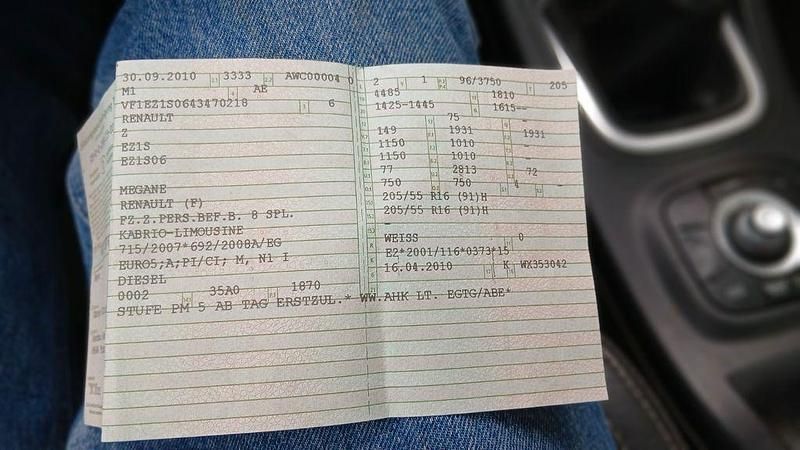 30.09.2010 3333 AWC00004 0
M1 AE
VF1EZ1S0643470218 6
RENAULT
Z
EZ1S
EZ1S06
MEGANE
RENAULT (F)
FZ.Z.PERS.BEF.B. 8 SPL.
KABRIO-LIMOUSINE
715/2007*692/2008A/EG
EURO5;A;PI/CI; M, N1 I
DIESEL
0002 35A0 1870
STUFE PM 5 AB TAG ERSTZUL.* WW.AHK LT. EGTG/ABE*
2 1 96/3750 205
4485 1810
1425-1445 1615–
75 –
149 1931 1931
1150 1010 –
1150 1010 –
77 2813 72
750 750 4 –
205/55 R16 (91)H
205/55 R16 (91)H
–
WEISS 0
E2*2001/116*0373*15
16.04.2010 K WX353042